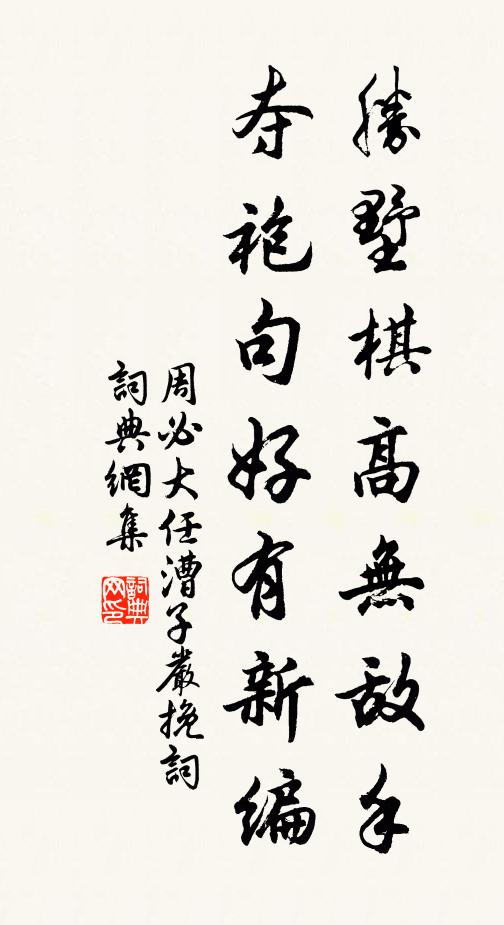 勝墅棋高無敵手
夺袍句好有新編
周必大任漕子嚴挽詞
詞典網集
詞典
网印